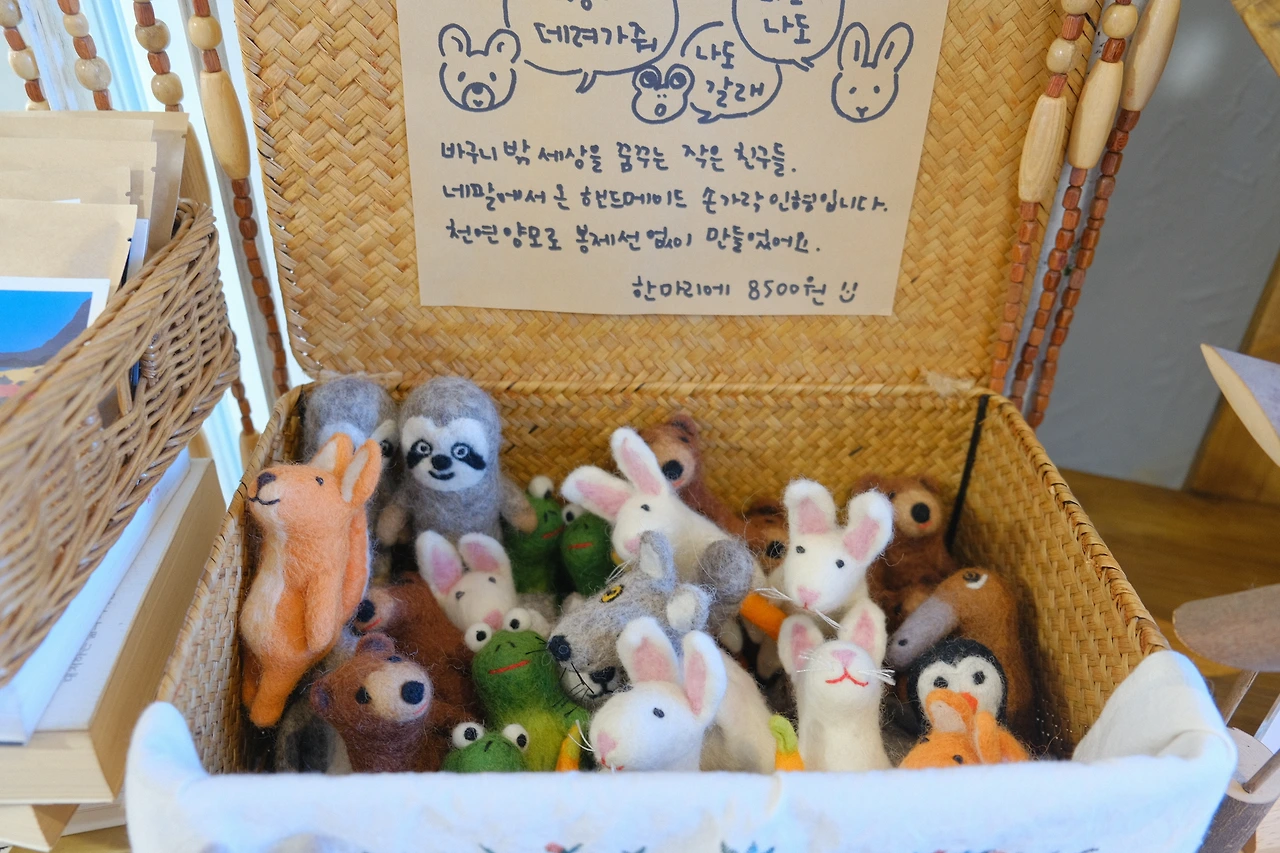 데려가줘
나도
갈래
나도
바구니 밖 세상을 꿈꾸는 작은 친구들.
네팔에서 온 핸드메이드 손가락 인형입니다.
천연양모로 봉제선 없이 만들었어요.
한마리에 8500원